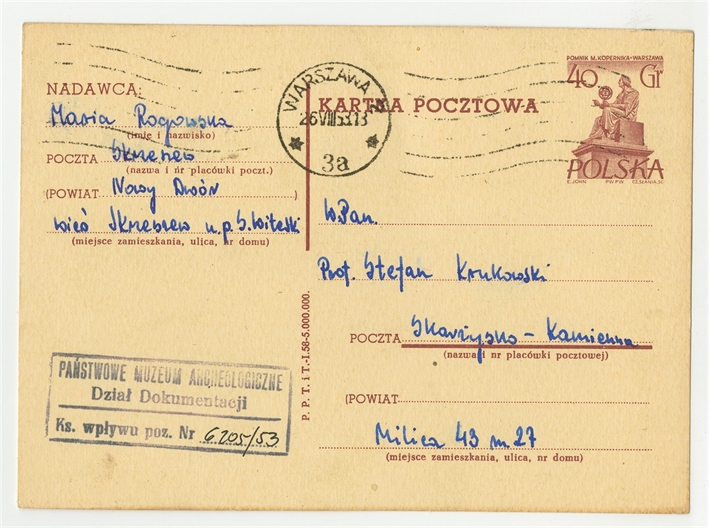 POMNIK M. KOPERNIKA-WARSZAWA
40 Gr
POLSKA
E. JOHN PWPW CZ. SŁANIA, SC.
WARSZAWA
26.VIII.53.13
3a
KARTKA POCZTOWA
NADAWCA:
Maria Rogowska
(imię i nazwisko)
POCZTA Skrzeszew
(nazwa i nr placówki poczt.)
(POWIAT Nowy Dwór )
wieś Skrzeszew u.p. S. Witeski
(miejsce zamieszkania, ulica, nr domu)
W.Pan.
Prof. Stefan Krukowski
POCZTA Skarżysko - Kamienna
(nazwa i nr placówki pocztowej)
(POWIAT )
Milica 43 m. 27
(miejsce zamieszkania, ulica, nr domu)
P. P. T. i T.-I.58-5.000.000.
PAŃSTWOWE MUZEUM ARCHEOLOGICZNE
Dział Dokumentacji
Ks. wpływu poz. Nr 6205/53